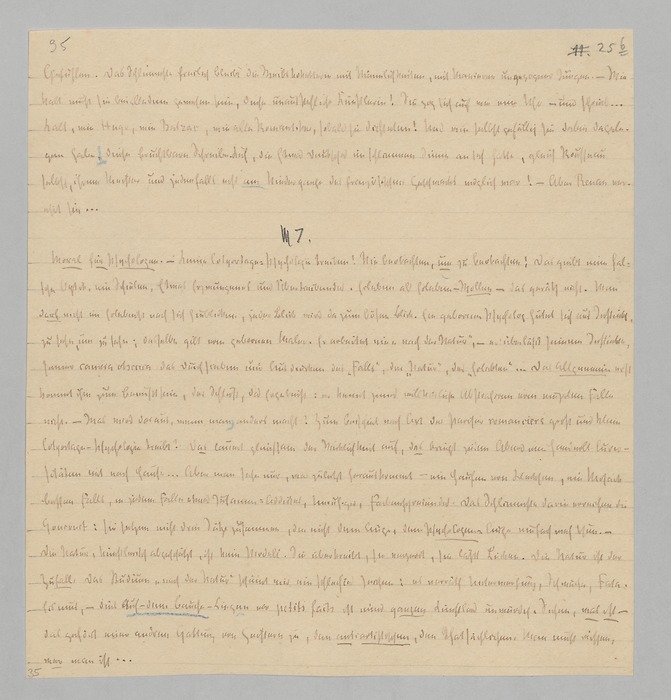 35 11. 25 b
Gefühlen. Das Schlimmste freilich bleibt die Weibskoketterie mit Männlichkeiten, mit Manieren ungezogener Jungen. — Wie
kalt muß sie bei alledem gewesen sein, diese unausstehliche Künstlerin! Sie zog sich auf wie eine Uhr — und schrieb...
Kalt, wie Hugo, wie Balzac, wie alle Romantiker, sobald sie dichteten! Und wie selbstgefällig sie dabei dagele-
gen haben! diese fruchtbare Schreibe-Kuh, die etwas Deutsches im schlimmen Sinne an sich hatte, gleich Rousseau
selbst, ihrem Meister und jedenfalls erst Niedergange des französischen Geschmacks möglich war! — Aber Renan ver-
ehrt sie...
7.
Moral für Psychologen. — Keine Colportage-Psychologie treiben! Nie beobachten, um zu beobachten! Das giebt eine fal-
sche Optik, ein Schielen, etwas Erzwungenes und Übertreibendes. Erleben als Erleben-Wollen — das geräth nicht. Man
darf nicht im Erlebniß nach sich hinblicken, jeder Blick wird da zum bösen Blick. Ein geborener Psycholog hütet sich aus Instinkt,
zu sehn, um zu sehn; dasselbe gilt vom geborenen Maler. Er arbeitet nie „nach der Natur“, — er überläßt seinem Instinkte,
seiner camera obscura das Durchsieben und Ausdrücken des „Falls“, der „Natur“, des „Erlebten“... Das Allgemeine erst
kommt ihm zum Bewußtsein, der Schluß, das Ergebniß: er kennt jenes willkürliche Abstrahiren vom einzelnen Falle
nicht. — Was wird daraus, wenn man es anders macht? Zum Beispiel nach Art der Pariser romanciers groß und klein
Colportage-Psychologie treibt? Das lauert gleichsam der Wirklichkeit auf, das bringt jeden Abend eine Handvoll Curio-
sitäten mit nach Hause... Aber man sehe nur, was zuletzt herauskommt — ein Haufen von Klecksen, ein Mosaik
besten Falls, in jedem Falle etwas Zusammen-Addirtes, Unruhiges, Farbenschreiendes. Das Schlimmste darin erreichen die
Goncourt: sie setzen nicht drei Sätze zusammen, die nicht dem Auge, dem Psychologen-Auge einfach weh thun. —
Die Natur, künstlerisch abgeschätzt, ist kein Modell. Sie übertreibt, sie verzerrt, sie läßt Lücken. Die Natur ist der
Zufall. Das Studium „nach der Natur“ scheint mir ein schlechtes Zeichen: es verräth Unterwerfung, Schwäche, Fata-
lismus, — dies Auf-dem-Bauche-Liegen vor petits faits ist eines ganzen Künstlers unwürdig. Sehen, was ist —
das gehört einer andern Gattung von Geistern zu, den antiartistischen, den Thatsächlichen. Man muß wissen,
wer man ist...
35